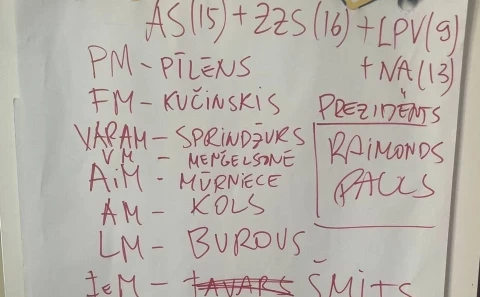 AS(15) + ZZS(16) + LPV(9)
+ NA(13)
PM - PĪLĒNS
FM - KUČINSKIS
VARAM - SPRINDŽUKS
VM - MEŅĢELSONE
AiM - MŪRNIECE
ĀM - KOLS
LM - BUROVS
IeM - TAVARS ŠMITS
PREZIDENTS
RAIMONDS
PAULS